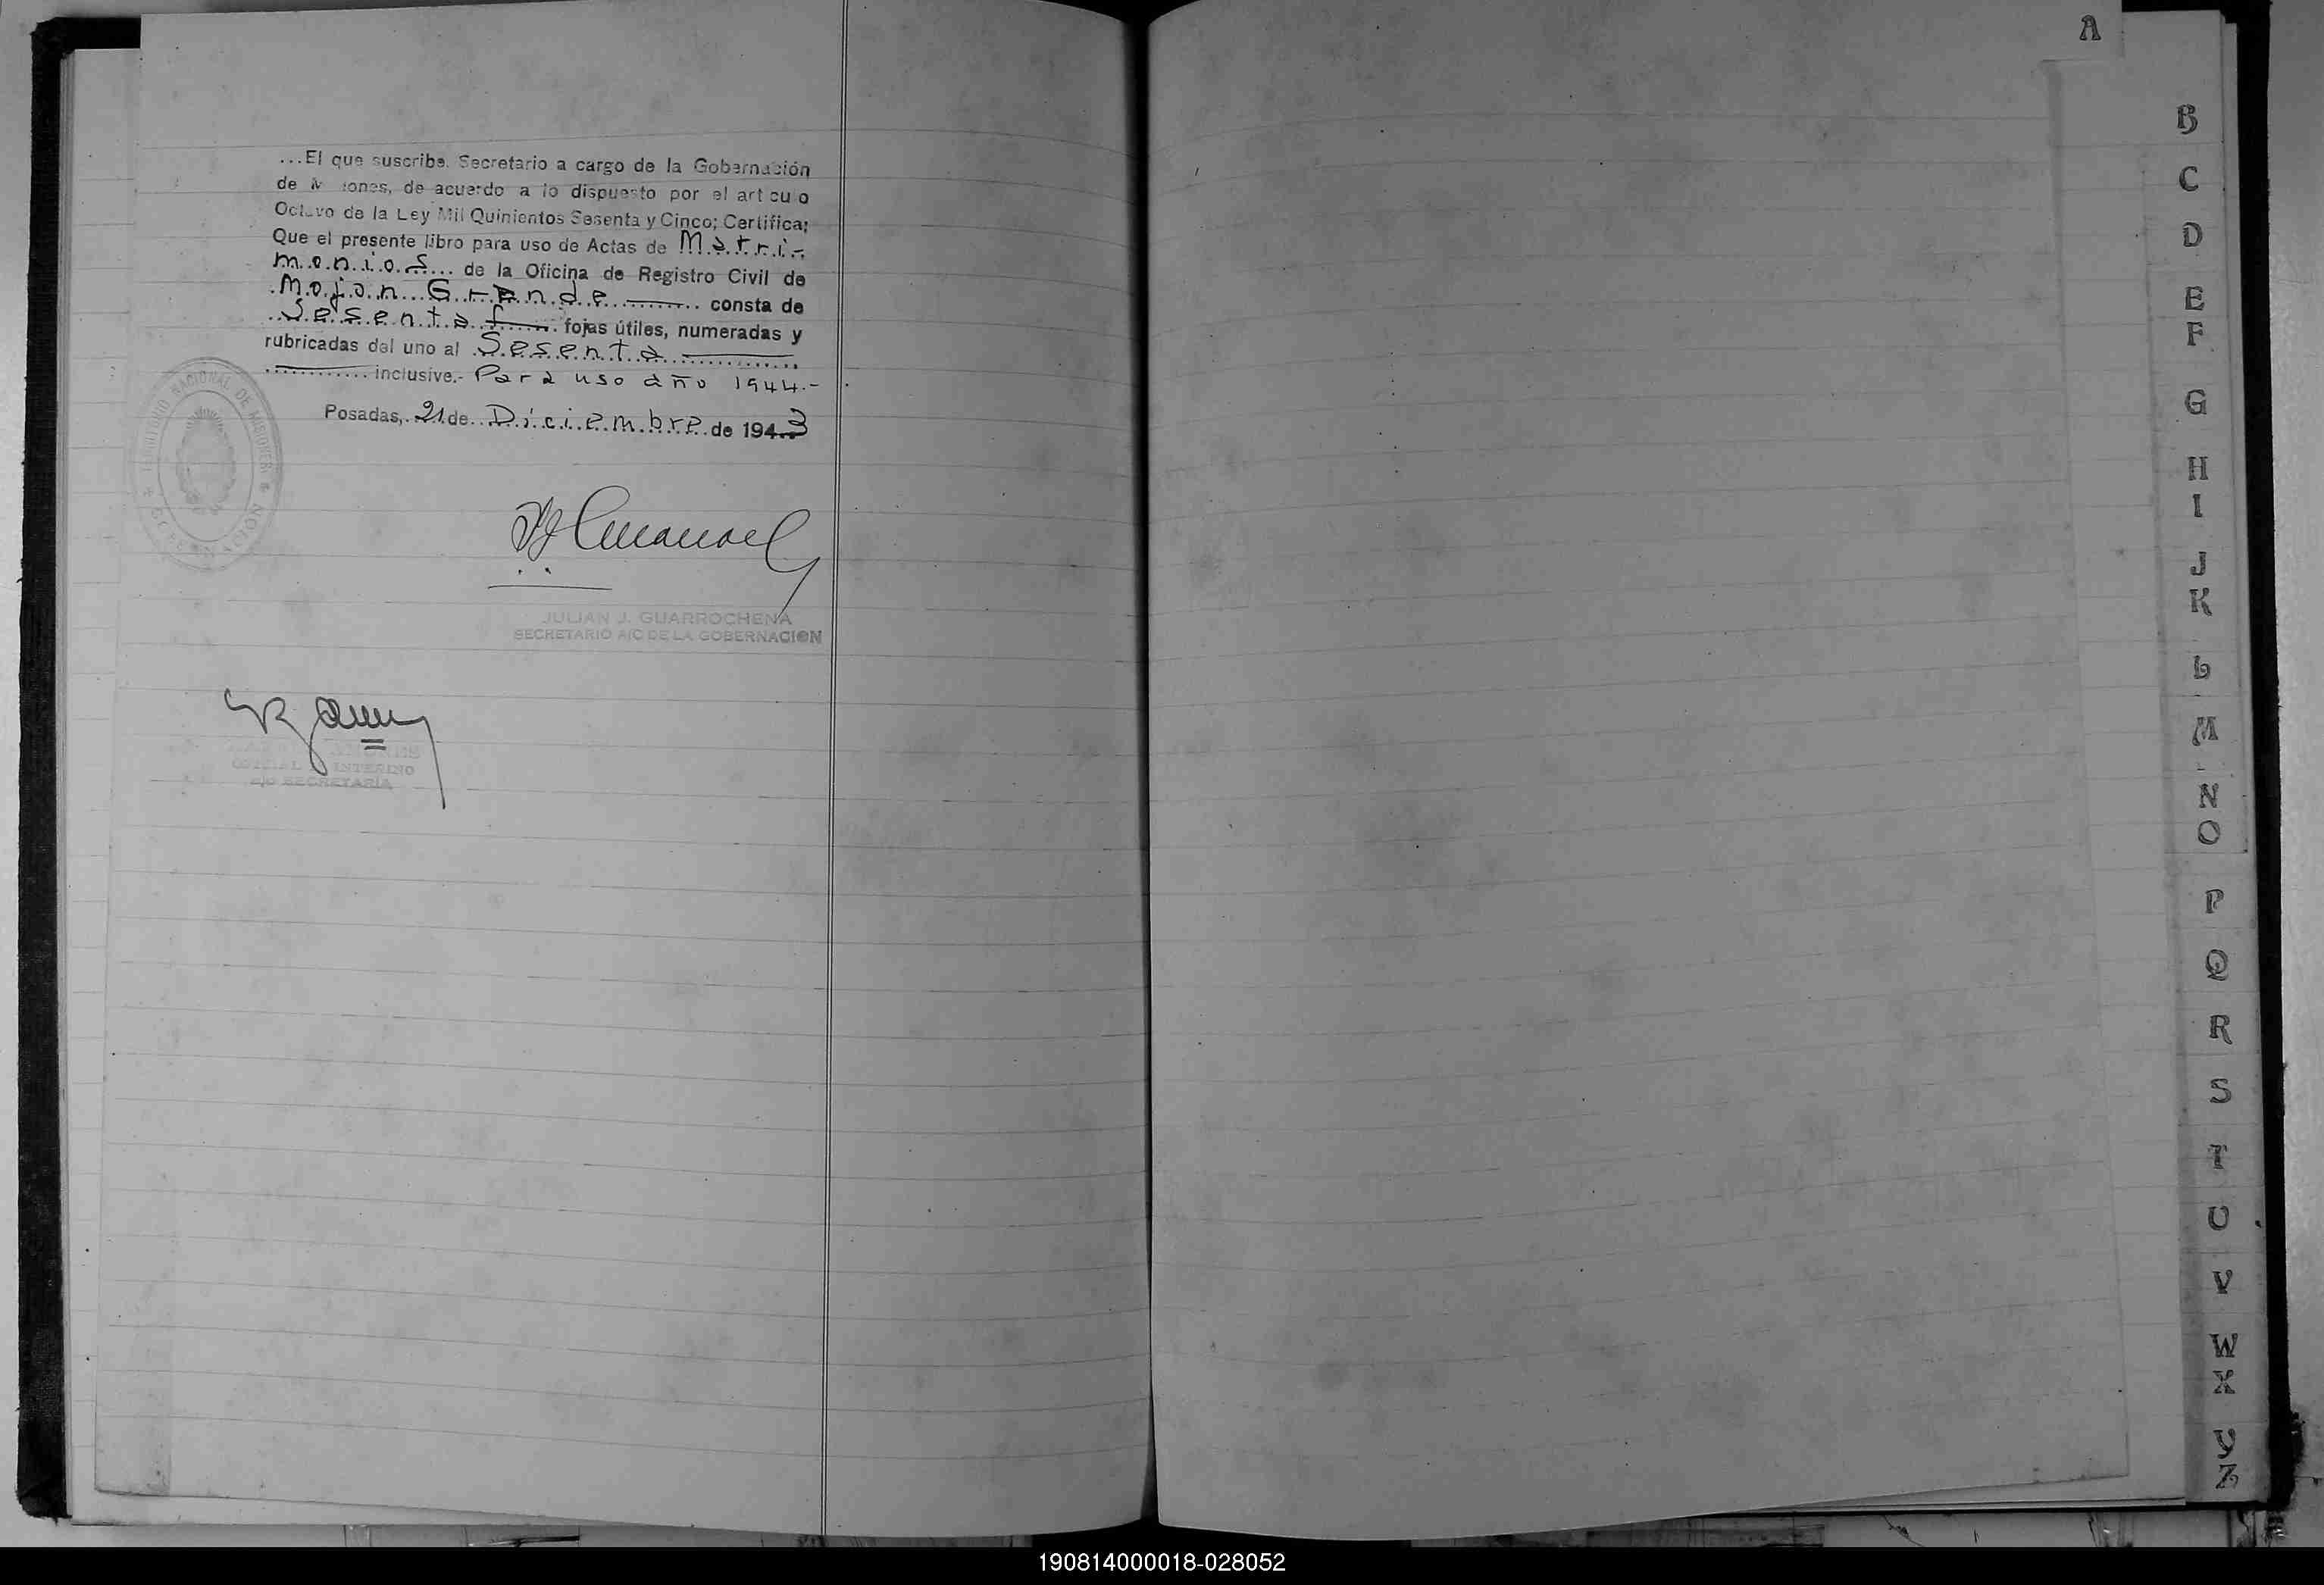 ...El que suscribe. Secretario a cargo de la Gobernación
de de acuerdo a lo dispuesto por el art culo
Octavo de la Ley Mil Quinientos Sesenta y Cinco; Certifica;
Que el presente libro para uso de Actas de Matri-
monios... de la Oficina de Registro Civil de
Mojon Grande consta de
Sesenta fojas útiles, numeradas y
rubricadas del uno al Sesenta
inclusive.- Para uso año 1944.-
Posadas, 21 de Diciembre de 1943
TERRITORIO NACIONAL DE MISIONES
GOBERNACION
JULIAN J. GUARROCHENA
SECRETARIO A/C DE LA GOBERNACION
OFICIAL INTERINO
a/c SECRETARÍA
A
B
C
D
E
F
G
H
I
J
K
L
M
N
O
P
Q
R
S
T
U
V
W
X
Y
Z
190814000018-028052